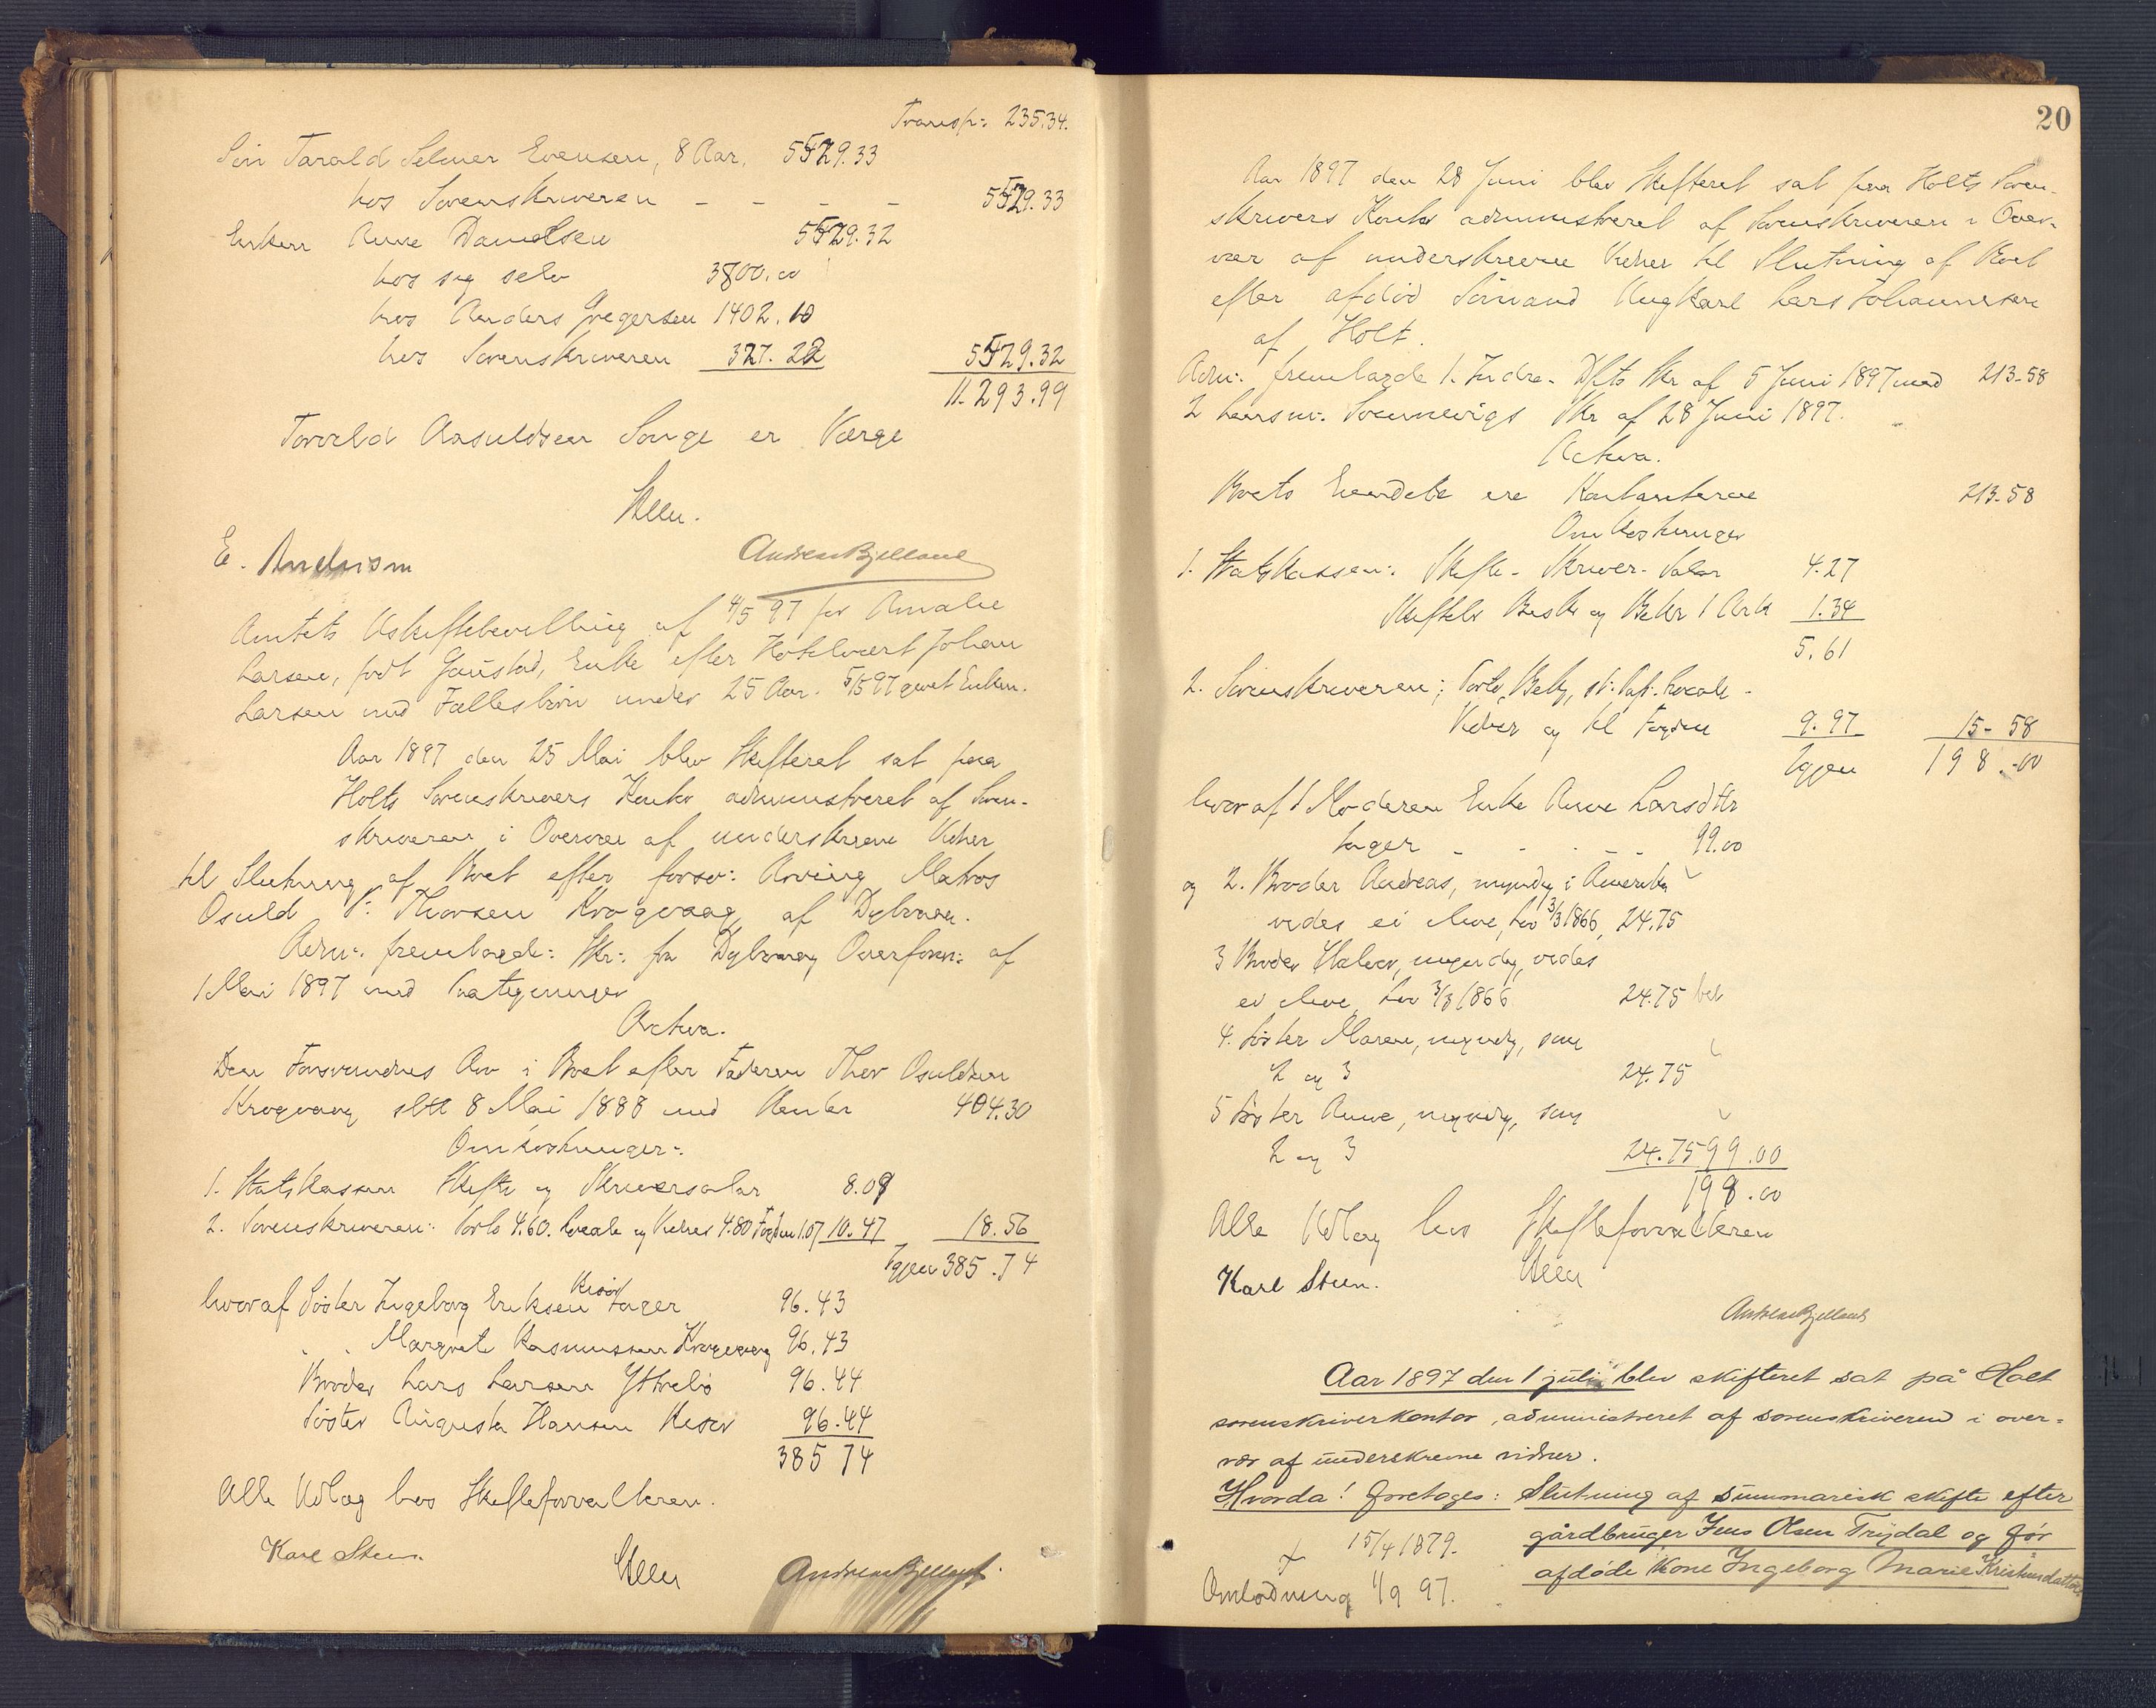 Transp: 235.34.
Søn Tarald Selmer Evensen, 8 Aar. 5529.33
hos Sorenskriveren - - - - 5529.33
Enken Anne Danielsen 5529.32
hos sig selv 3800.00
hos Anders Gregersen 1402.10
hos Sorenskriveren 327.22 5529.32
11.293.99
Torvald Aasuldsen Songe er Værge
E. Andersen Andreas Bjelland
Amtets Uskiftebevilling af 4/5 97 for Amalie
Larsen, født Gaustad, Enke efter Hotelvært Johan
Larsen med Fællesbørn under 25 Aar. 5/5 97 givet Enken.
Aar 1897 den 25 Mai blev Skifteret sat paa
Holts Sorenskrivers Kontor administreret af Soren-
skriveren i Overvær af underskrevne Vidner
til Slutning af Boet efter forsv: Arving Matros
Osuld Thorsen Krogvaag af Dybvaag.
Adm: fremlagde: Skr: fra Dybvaag Overform: af
1 Mai 1897 med Paategninger
Activa.
Den Forsvundnes Arv i Boet efter Faderen Thor Osuldsen
Krogvaag sltt 8 Mai 1888 med Renter 404.30
Omkostninger:
1. Statskassen Skifte og Skriversalar 8.09
2. Sorenskriveren: Porto 4.60. Locale og Vidner 4.80 Fogden 1.07 10.47 18.56
Igjen 385.74
hvoraf Søster Ingeborg Eriksen Risør tager 96.43
" " Margrete Rasmussen Krogvaag 96.43
Broder Lars Larsen Ytrebø 96.44
Søster Augusta Hansen Risør 96.44
385 74
Alle Udlæg hos Skifteforvalteren.
Karl Steen. Andreas Bjelland.
20
Aar 1897 den 28 Juni blev Skifteret sat paa Holts Soren-
skrivers Kontor administreret af Sorenskriveren i Over-
vær af underskrevne Vidner til Slutning af Boet
efter afdød Sømand Ungkarl Lars Johannesen
af Holt.
Adm: fremlagde 1. Indre- Dpts Skr af 5 Juni 1897 med 213-58
2 Lensm: Svennevigs Skr af 28 Juni 1897.
Activa.
Boets Eiendele ere Kontanterne 213.58
Omkostninger
1. Statskassen: Skifte- Skriver- Salar 4.27
Skiftebr Besk og Bekr 1 Ark 1.34
5.61
2. Sorenskriveren; Porto, Bekj, Locale -
Vidner og til Fogden 9.97 15-58
Igjen 198.-00
hvoraf 1 Moderen Enke Anne Larsdtr
tager - - - - 99.00
og 2. Broder Andreas, myndig i Amerika
vides ei leve, Lov 3/3 1866, 24.75
3 Broder Halvor, myndig, vides
ei leve, Lov 3/3 1866 24.75
4. Søster Maren, myndig, som
2 og 3 24.75
5 Søster Anne, myndig, som
2 og 3 24.75 99.00
198.00
Alle Udlæg hos Skifteforvalteren
Karl Steen.
Andreas Bjelland
Aar 1897 den 1 juli blev skifteret sat på Holt
sorenskriverkontor, administreret af sorenskriveren i over-
vær af underskrevne vidner.
Hvorda! foretoges: Slutning af summarisk skifte efter
gårdbruger Jens Olsen Trydal og før
afdøde Kone Ingeborg Marie Kristensdatter
+ 15/4 1879.
Omlodning 1/9 97.